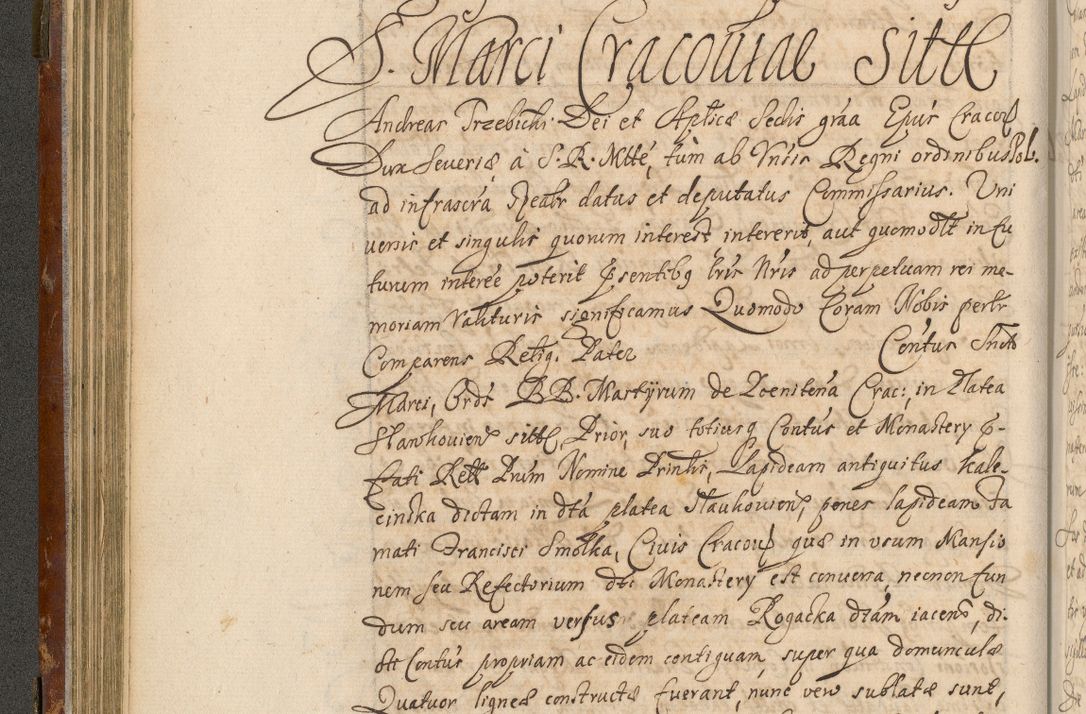 S. Marci Cracoviae Sittt
Andreas Trzebicki Dei et Aplicæ Sedis gráa Epús Cracoñ
Dux Severiæ, à S. R. Mtté, tum ab Vnsis Regni ordinibus Pol.
ad infrascrá Speabr datus et deputatus Commissarius. Uni
versis et singulis quorum interest intererit, aut quomodlt in fu
turum interee poterit psentibq lris Nris ad perpetuam rei me-
moriam Valituris significamus Quomodo Coram Nobis perlr
Comparens Relig. Pater Centus Snct
Marci, Ordt BB. Martÿrum de Poenitená Crac: in Platea
Slawkovien sittt, Prior, suo totiusq Contús et Monastery p-
fati Rett Prum Nomine Printis, Lapideam antiquitus kale-
cinska dictam in dtá platea Slaukovien, penes lapideam Fa
mati Francisci Smolka, Civis Cracov quæ in vsum Mansio
nem seu Refectorium dti Monastery est conversa, necnon fun
dum seu aream versus plateam Rogacka dtám iacens, di-
cti Contús propriam ac eidem contiguam, super qua domunculæ
Quatuor ligneæ constructæ fuerant, nunc vero sublatæ sunt,